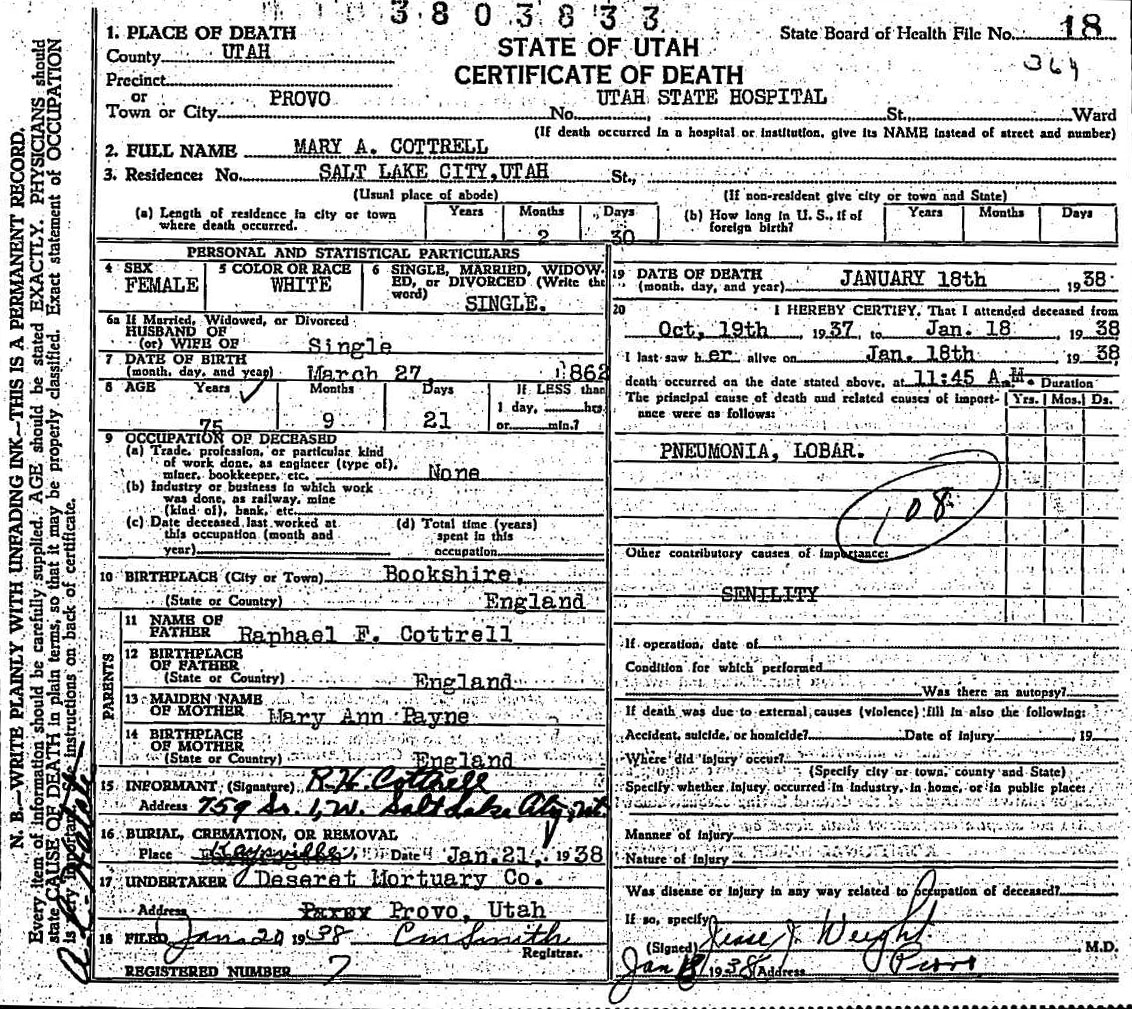 3803833
1. PLACE OF DEATH
County UTAH
Precinct
or
Town or City PROVO
STATE OF UTAH
CERTIFICATE OF DEATH
State Board of Health File No. 18
364
UTAH STATE HOSPITAL
No. St., Ward
(If death occurred in a hospital or institution, give its NAME instead of street and number)
2. FULL NAME MARY A. COTTRELL
3. Residence: No. SALT LAKE CITY, UTAH St.,
(Usual place of abode) (If non-resident give city or town and State)
(a) Length of residence in city or town where death occurred. Years Months 2 Days 30
(b) How long in U. S., if of foreign birth? Years Months Days
PERSONAL AND STATISTICAL PARTICULARS
4 SEX
FEMALE
5 COLOR OR RACE
WHITE
6 SINGLE, MARRIED, WIDOW-
ED, or DIVORCED (Write the
word) SINGLE.
6a If Married, Widowed, or Divorced
HUSBAND OF
(or) WIFE OF Single
7 DATE OF BIRTH
(month, day, and year) March 27 1862
8 AGE Years Months Days If LESS than
1 day, hrs.
75 9 21 or min.?
9 OCCUPATION OF DECEASED
(a) Trade, profession, or particular kind
of work done, as engineer (type of),
miner, bookkeeper, etc. None
(b) Industry or business in which work
was done, as railway, mine
(kind of), bank, etc.
(c) Date deceased last worked at
this occupation (month and
year)
(d) Total time (years)
spent in this
occupation
10 BIRTHPLACE (City or Town) Bookshire,
(State or Country) England
PARENTS
11 NAME OF
FATHER Raphael F. Cottrell
12 BIRTHPLACE
OF FATHER
(State or Country) England
13 MAIDEN NAME
OF MOTHER Mary Ann Payne
14 BIRTHPLACE
OF MOTHER
(State or Country) England
15 INFORMANT (Signature) R. H. Cottrell
Address 759 So. 1, W. Salt Lake City, Ut.
16 BURIAL, CREMATION, OR REMOVAL
Place Kaysville, Date Jan. 21, 1938
17 UNDERTAKER Deseret Mortuary Co.
Address Provo, Utah
18 FILED Jan 20 1938 C M Smith
Registrar.
REGISTERED NUMBER 7
19 DATE OF DEATH
(month, day, and year) JANUARY 18th 1938
20 I HEREBY CERTIFY, That I attended deceased from
Oct, 19th 1937 to Jan. 18 1938
I last saw her alive on Jan. 18th 1938
death occurred on the date stated above, at 11:45 A.M. Duration
The principal cause of death and related causes of import-
ance were as follows: Yrs. Mos. Ds.
PNEUMONIA, LOBAR.
108
Other contributory causes of importance:
SENILITY
If operation, date of
Condition for which performed
Was there an autopsy?
If death was due to external causes (violence) fill in also the following:
Accident, suicide, or homicide? Date of injury 19
Where did injury occur?
(Specify city or town, county and State)
Specify whether injury occurred in industry, in home, or in public place:
Manner of injury
Nature of injury
Was disease or injury in any way related to occupation of deceased?
If so, specify
(Signed) Jesse J. Weight M.D.
Jan 18 1938 Address Provo
N. B.—WRITE PLAINLY WITH UNFADING INK—THIS IS A PERMANENT RECORD.
Every item of information should be carefully supplied. AGE should be stated EXACTLY. PHYSICIANS should
state CAUSE OF DEATH in plain terms, so that it may be properly classified. Exact statement of OCCUPATION
is very important. See instructions on back of certificate.